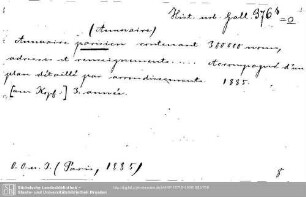 Hist. urb. Gall. 376 b =2
(Annuaire)
Annuaire parisien contenant 300 000 noms,
adresses et renseignements .... Accompagné d'un
plan détaillé par arrondissements. 1885.
[am Kopf:] 3. année.
o. O. u. J. (Paris, 1885)
8
Sächsische Landesbibliothek -
Staats- und Universitätsbibliothek Dresden